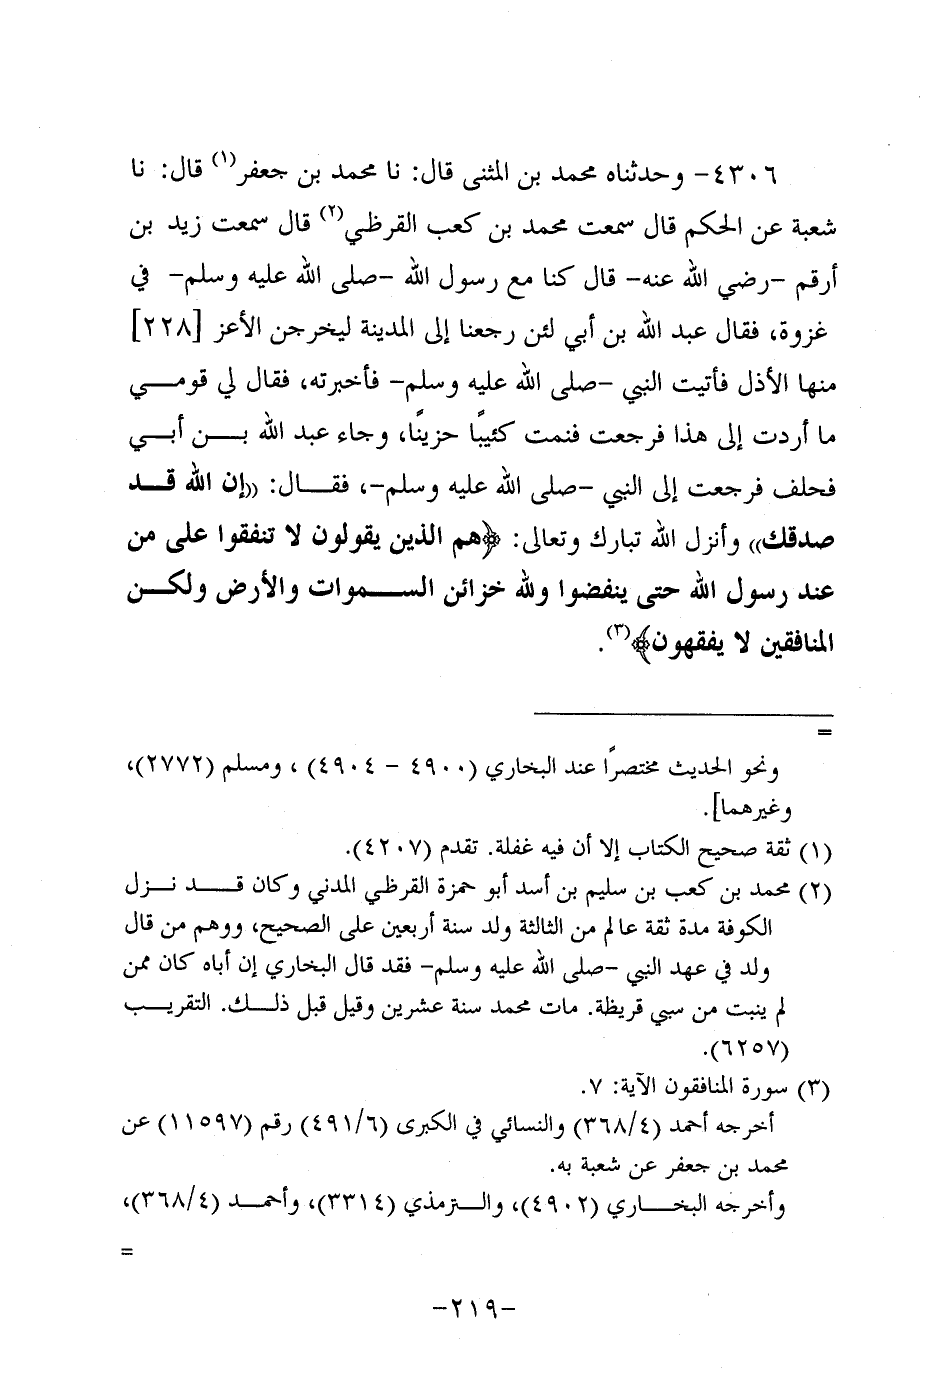 ٤٣٠٦- وحدثناه محمد بن المثنى قال: نا محمد بن جعفر(١) قال: نا
شعبة عن الحكم قال سمعت محمد بن كعب القرظي(٢) قال سمعت زيد بن
أرقم -رضي الله عنه- قال كنا مع رسول الله -صلى الله عليه وسلم- في
غزوة، فقال عبد الله بن أبي لئن رجعنا إلى المدينة ليخرجن الأعز [٢٢٨]
منها الأذل فأتيت النبي -صلى الله عليه وسلم- فأخبرته، فقال لي قومي
ما أردت إلى هذا فرجعت فنمت كئيبًا حزينًا، وجاء عبد الله بن أبي
فحلف فرجعت إلى النبي -صلى الله عليه وسلم-، فقال: ((إن الله قد
صدقك)) وأنزل الله تبارك وتعالى: ﴿هم الذين يقولون لا تنفقوا على من
عند رسول الله حتى ينفضوا ولله خزائن السموات والأرض ولكن
المنافقين لا يفقهون﴾(٣).
=
ونحو الحديث مختصرًا عند البخاري (٤٩٠٠ - ٤٩٠٤) ، ومسلم (٢٧٧٢)،
وغيرهما].
(١) ثقة صحيح الكتاب إلا أن فيه غفلة. تقدم (٤٢٠٧).
(٢) محمد بن كعب بن سليم بن أسد أبو حمزة القرظي المدني وكان قد نزل
الكوفة مدة ثقة عالم من الثالثة ولد سنة أربعين على الصحيح، ووهم من قال
ولد في عهد النبي -صلى الله عليه وسلم- فقد قال البخاري إن أباه كان ممن
لم ينبت من سبي قريظة. مات محمد سنة عشرين وقيل قبل ذلك. التقريب
(٦٢٥٧).
(٣) سورة المنافقون الآية: ٧.
أخرجه أحمد (٣٦٨/٤) والنسائي في الكبرى (٤٩١/٦) رقم (١١٥٩٧) عن
محمد بن جعفر عن شعبة به.
وأخرجه البخاري (٤٩٠٢)، والترمذي (٣٣١٤)، وأحمد (٣٦٨/٤)،
=
-٢١٩-